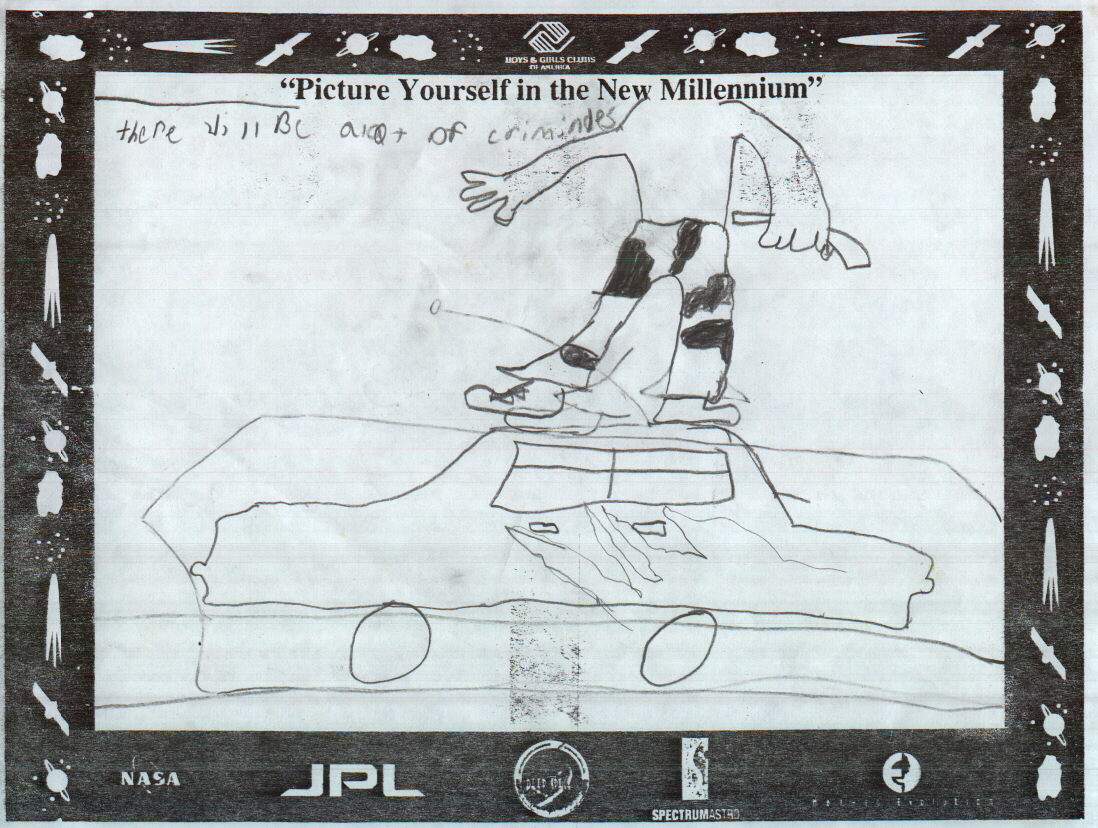 BOYS & GIRLS CLUBS
OF AMERICA
“Picture Yourself in the New Millennium”
there Will Be alot of crimindes
NASA
JPL
SPECTRUMASTRO